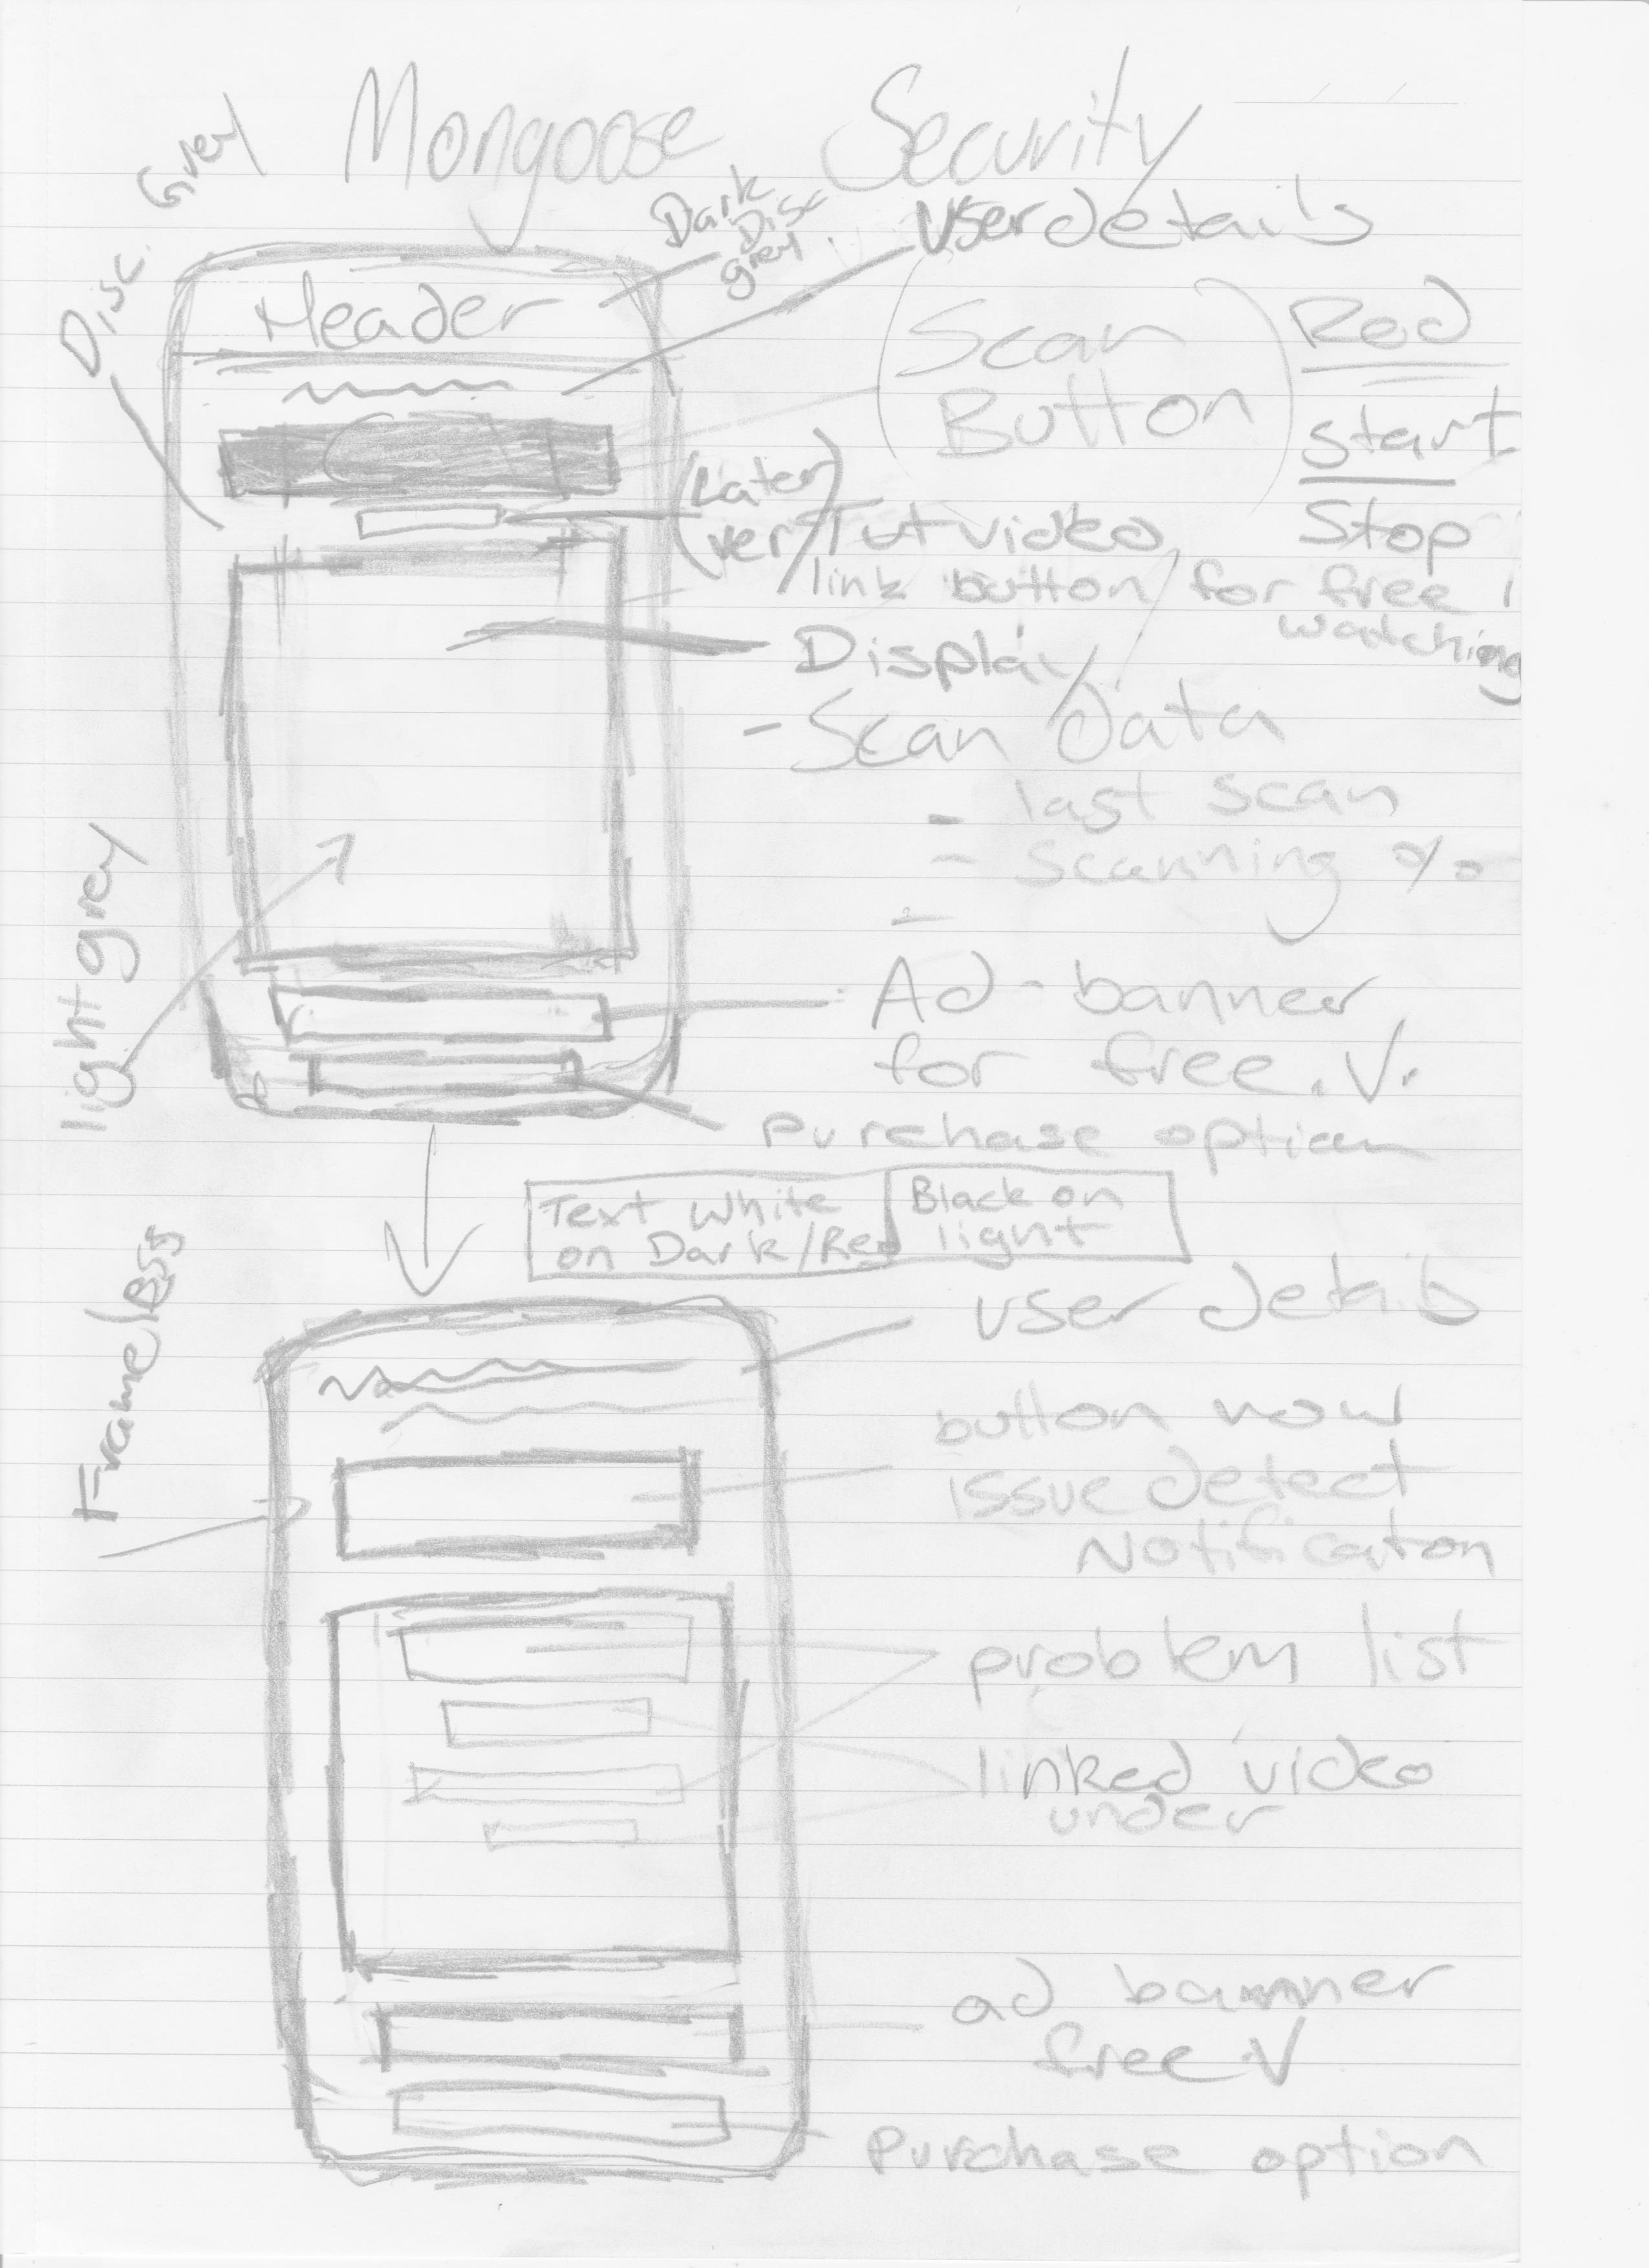 Mongoose Security
Disc. Grey
Dark
Disc
grey.
User details
Header
(Scan
Button)
Red
start
Stop
(Later
ver)
Tut video
link button for free
watching
Display
- Scan data
- last scan
- scanning %
-
light grey
Ad-banner
for free. V.
purchase option
Text White
on Dark/Red
Black on
light
Frame/
user details
button now
issue detect
Notification
problem list
linked video
under
ad banner
free V
Purchase option